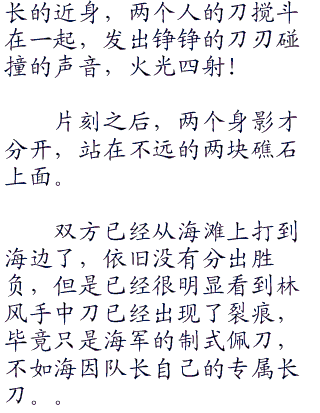 长的近身，两个人的刀搅斗
在一起，发出铮铮的刀刃碰
撞的声音，火光四射！
片刻之后，两个身影才
分开，站在不远的两块礁石
上面。
双方已经从海滩上打到
海边了，依旧没有分出胜
负，但是已经很明显看到林
风手中刀已经出现了裂痕，
毕竟只是海军的制式佩刀，
不如海因队长自己的专属长
刀。。